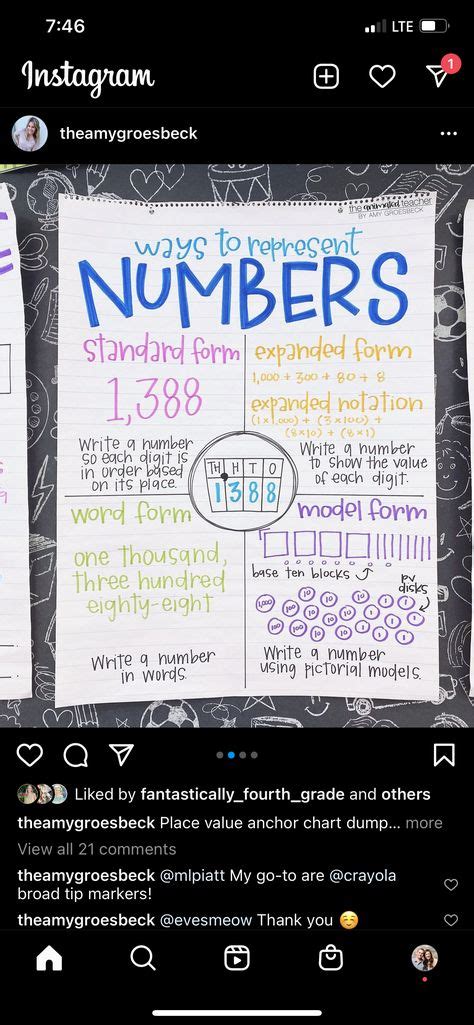 7:46
LTE
Instagram
1
theamygroesbeck
the animated teacher
BY AMY GROESBECK
ways to represent
NUMBERS
standard form
1,388
Write a number
so each digit is
in order based
on its place.
expanded form
1,000 + 300 + 80 + 8
expanded notation
(1 x 1,000) + (3 x 100) +
(8 x 10) + (8 x 1)
Write a number
to show the value
of each digit.
TH H T O
1 3 8 8
word form
one thousand,
three hundred
eighty-eight
Write a number
in words.
model form
base ten blocks
pv
disks
1,000 100 10 10 10 1 1
100 10 10 10 1 1
100 10 10 1 1 1 1
Write a number
using pictorial models.
Liked by fantastically_fourth_grade and others
theamygroesbeck Place value anchor chart dump... more
View all 21 comments
theamygroesbeck @mlpiatt My go-to are @crayola
broad tip markers!
theamygroesbeck @evesmeow Thank you ☺️